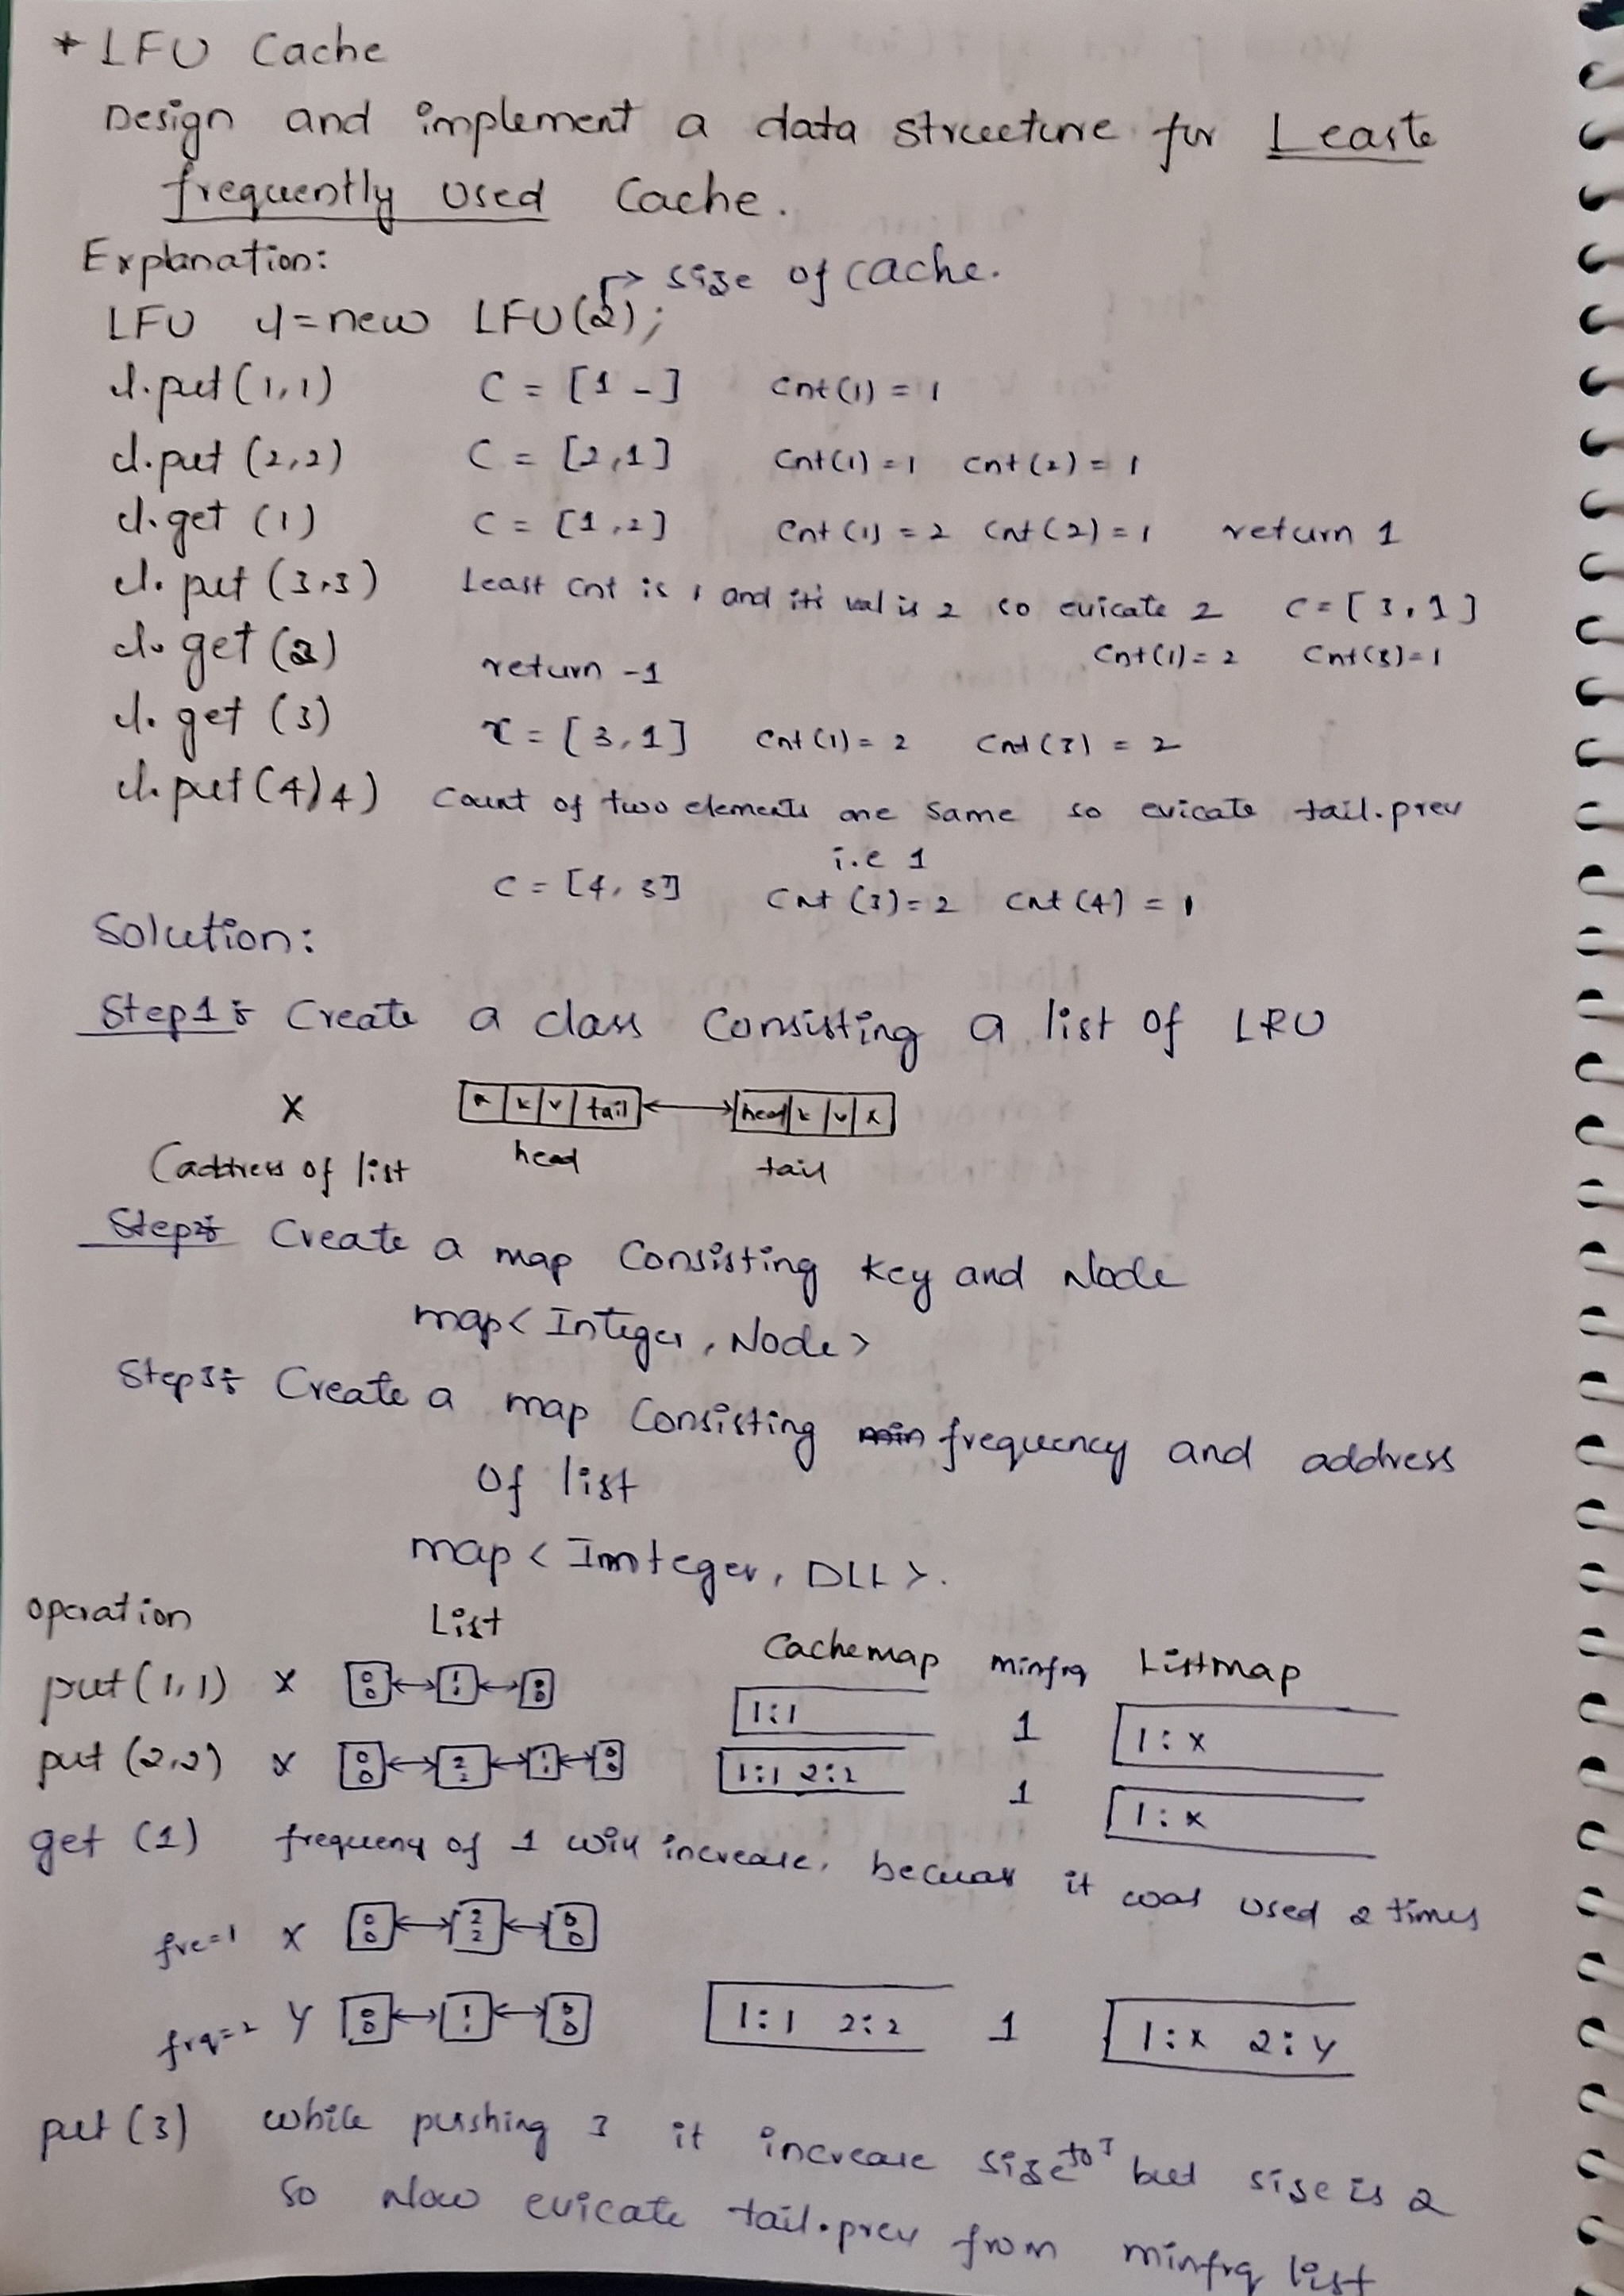 * LFU Cache
Design and implement a data structure for Least
frequently used Cache.
Explanation:
→ size of cache.
LFU cl = new LFU(2);
cl.put(1,1) C = [1 -] Cnt(1) = 1
cl.put (2,2) C = [2,1] Cnt(1) = 1 Cnt(2) = 1
cl.get (1) C = [1,2] Cnt(1) = 2 Cnt(2) = 1 return 1
cl.put (3,3) Least cnt is 1 and its val is 2 so evicate 2 C = [3,1]
Cnt(1) = 2 Cnt(3) = 1
cl.get (2) return -1
cl.get (3) C = [3,1] Cnt(1) = 2 Cnt(3) = 2
cl.put(4,4) Count of two elements are same so evicate tail.prev
i.e 1
C = [4,3] Cnt (3) = 2 Cnt (4) = 1
Solution:
Step1: Create a class Consisting a list of LRU
X k v tail ↔ head k v x
(address of list head tail
Step2: Create a map Consisting key and Node
map< Integer, Node>
Step3: Create a map Consisting min frequency and address
Of list
map < Imteger, DLL>.
operation List Cachemap minfrq Listmap
put(1,1) X 0 0 ↔ 1 1 ↔ 0 0 1:1 1 1:X
put (2,2) X 0 0 ↔ 2 2 ↔ 1 1 ↔ 0 0 1:1 2:2 1 1:X
get (1) frequeny of 1 will increase, becuas it was used 2 times
fre=1 X 0 0 ↔ 2 2 ↔ 0 0
frq=2 Y 0 0 ↔ 1 1 ↔ 0 0 1:1 2:2 1 1:X 2:Y
put (3) while pushing 3 it increase size to 3 but size is 2
So Now evicate tail.prev from minfrq list